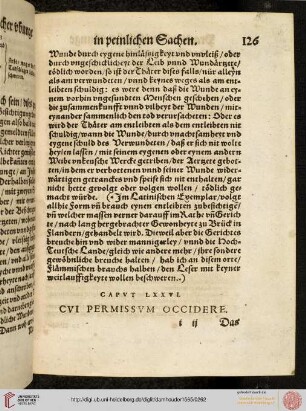 in peinlichen Sachen. 126
Wunde durch eygene hinlässigkeyt vnd vnvleiß / oder
durch vngeschicklicheyt der Leib vnnd Wundärtzte /
tödlich worden / so ist der Thäter dises falls / nür alleyn
als am verwundeten / vnnd keynes weges als am ent-
leibten schuldig: es were denn daß die Wunde an ey-
nem vorhin vngesundten Menschen geschehen / oder
die zusammenkunfft vnd vilheyt der Wunden / mit-
eynander sammenlich den tod verursachten: Oder es
wird der Thäter am entleibten als dem entleibten nit
schuldig / wann die Wunde / durch vnachtsamheyt vnd
eygene schuld des Verwundeten / daß er sich nit wolte
heylen lassen / mit eynem eygenen oder eynem andern
Weibe vnkeusche Wercke getriben / der Aertzte gebot-
ten / in dem er verbottenen vnnd seiner Wunde wider-
wärtigen getrancks vnd Speiß sich nit enthalten / gar
nicht hette gevolgt oder volgen wollen / tödlich ge-
macht würde. (* Im Latinischen Exemplar / volgt
allhie
vnd welcher massen verner darauff im Rath vñ Gerich
te / nach lang hergebrachter Gewonheyte zu Brück in
Flandern / gehandelt wirb. Dieweil aber die Gerichts
breuche hin vnd wider mannigerley / vnnd die Hoch
Teutsche Lande / gleich wie andere mehr / ihre sondere
gewöhnliche breuche halten / hab ich an disem orte /
Flämmischen brauchs halben / den Leser mit keyner
weitlauffigkeyte wollen beschweren.)
CAPVT LXXVI.
CVI PERMISSVM OCCIDERE.
i ij Das
UNIVERSITÄTS-
BIBLIOTHEK
HEIDELBERG
http://digi.ub.uni-heidelberg.de/diglit/damhouder1565/0262